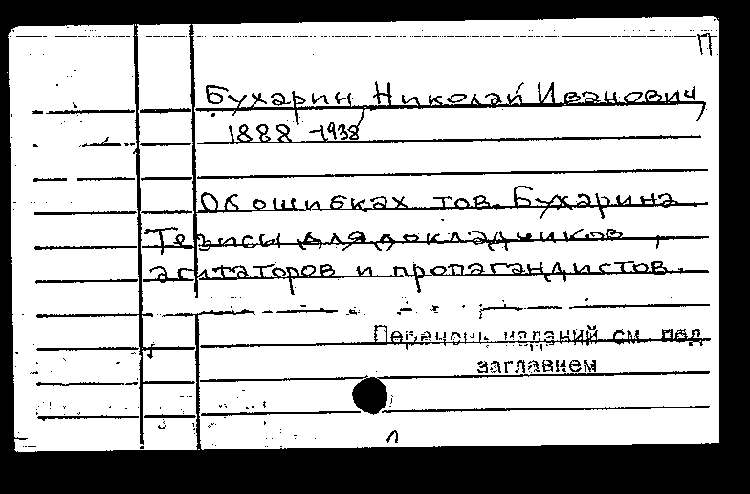 П
Бухарин Николай Иванович,
1888-1938
Об ошибках тов. Бухарина
Тезисы для докладчиков,
агитаторов и пропагандистов.
Перечень изданий см. под
заглавием